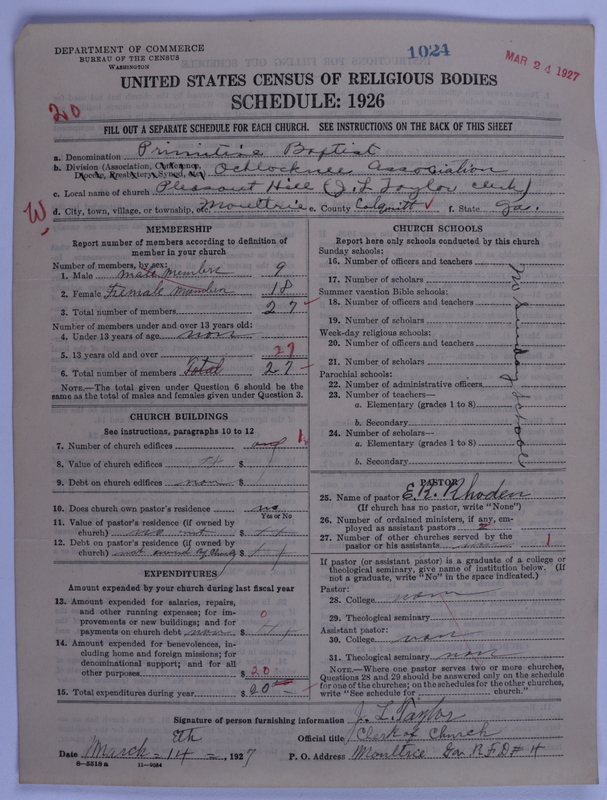 DEPARTMENT OF COMMERCE
BUREAU OF THE CENSUS
WASHINGTON
1024
MAR 24 1927
UNITED STATES CENSUS OF RELIGIOUS BODIES
SCHEDULE: 1926
20
FILL OUT A SEPARATE SCHEDULE FOR EACH CHURCH. SEE INSTRUCTIONS ON THE BACK OF THIS SHEET
a. Denomination Primitive Baptist
b. Division (Association, Conference, Diocese, Presbytery, Synod, etc.) Ochlocknee Association
c. Local name of church Pleasant Hill (J. L. Taylor clerk)
W
d. City, town, village, or township, etc. Moultrie e. County Colquitt f. State Ga.
MEMBERSHIP
Report number of members according to definition of
member in your church
Number of members, by sex:
1. Male male members 9
2. Female Female Members 18
3. Total number of members 27
Number of members under and over 13 years old:
4. Under 13 years of age non
5. 13 years old and over 27
6. Total number of members Total 27
NOTE.—The total given under Question 6 should be the
same as the total of males and females given under Question 3.
CHURCH BUILDINGS
See instructions, paragraphs 10 to 12
7. Number of church edifices one 1
8. Value of church edifices $
9. Debt on church edifices non $
10. Does church own pastor's residence no
Yes or No
11. Value of pastor's residence (if owned by
church) $
12. Debt on pastor's residence (if owned by
church) not owned by Church $
EXPENDITURES
Amount expended by your church during last fiscal year
13. Amount expended for salaries, repairs,
and other running expense; for im-
provements or new buildings; and for
payments on church debt none $ 0
14. Amount expended for benevolences, in-
cluding home and foreign missions; for
denominational support; and for all
other purposes $ 20
15. Total expenditures during year $ 20
CHURCH SCHOOLS
Report here only schools conducted by this church
Sunday schools:
16. Number of officers and teachers
17. Number of scholars
Summer vacation Bible schools:
18. Number of officers and teachers
19. Number of scholars
Week-day religious schools:
20. Number of officers and teachers
21. Number of scholars
Parochial schools:
22. Number of administrative officers
23. Number of teachers—
a. Elementary (grades 1 to 8)
b. Secondary
24. Number of scholars—
a. Elementary (grades 1 to 8)
b. Secondary
No Sunday School
PASTOR
25. Name of pastor E. R. Rhoden
(If church has no pastor, write "None")
26. Number of ordained ministers, if any, em-
ployed as assistant pastors
27. Number of other churches served by the
pastor or his assistants 1
If pastor (or assistant pastor) is a graduate of a college or
theological seminary, give name of institution below. (If
not a graduate, write "No" in the space indicated.)
Pastor:
28. College non
29. Theological seminary
Assistant pastor:
30. College non
31. Theological seminary non
NOTE.—Where one pastor serves two or more churches,
Questions 28 and 29 should be answered only on the schedule
for one of the churches; on the schedules for the other churches,
write "See schedule for church."
Signature of person furnishing information J. L. Taylor
Official title Clerk of Church
Date March 14 8th, 1927 P. O. Address Moultrie Ga R F D # 4
8—5518 a 11—9084